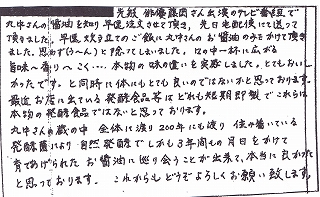 先般 俳優藤岡さん出演のテレビ番組で
丸中さんの醤油を知り早速注文させて頂き、先日宅配便にて送って
頂きました。早速炊き立てのご飯に丸中さんのお醤油のみをかけて頂き
ました。思わずう〜ん!と唸ってしまいました。口の中一杯に広がる
旨味へ香りへこく…。本物の味の違いを実感しました。とてもおいし
かったです。と同時に体にもとても良いのではないかと思っております。
最近お店に出ている発酵食品等はどれも短期即製でこれらは
本物の発酵食品ではないと思っております。
丸中さんの蔵の中全体に渡り200年にも渡り住み着いている
発酵菌により自然発酵でしかも3年間もの月日をかけて
育てあげられたお醤油に巡り会うことが出来て、本当に良かった
と思っております。これからもどうぞよろしくお願い致します。